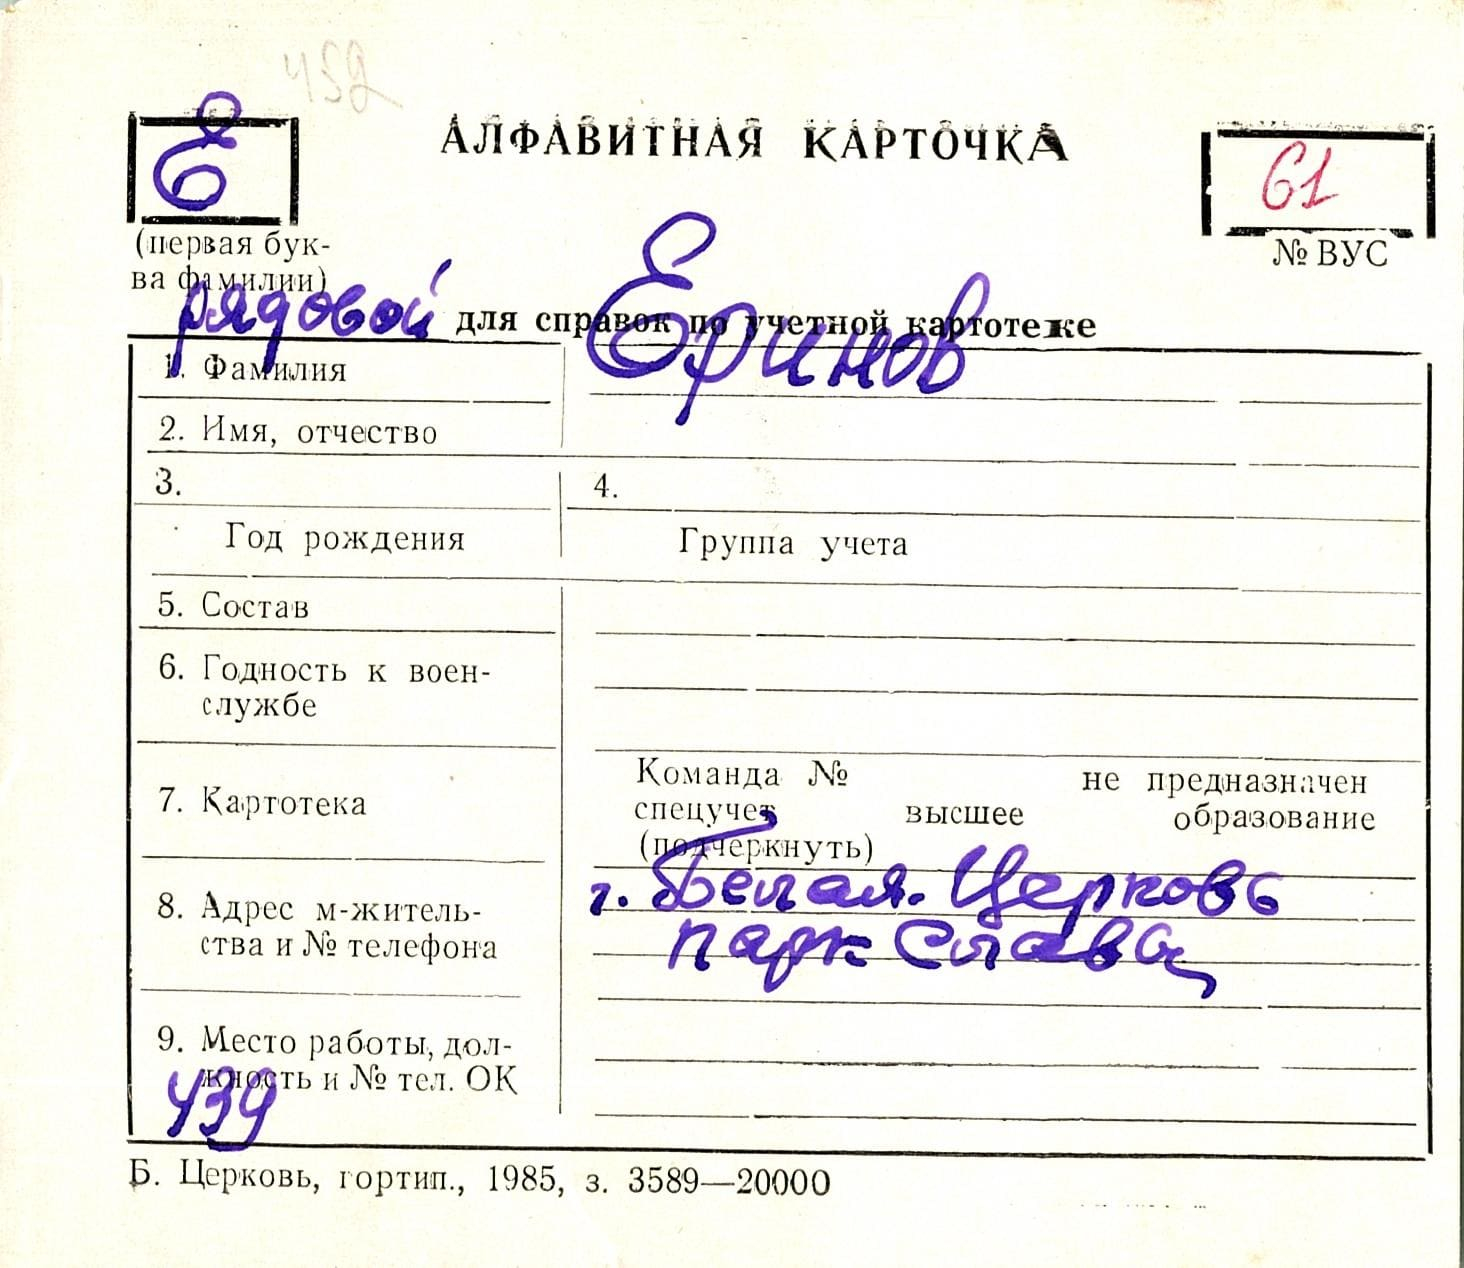 Е
АЛФАВИТНАЯ КАРТОЧКА
61
(первая бук-
ва фамилии)
№ ВУС
рядовой для справок по учетной картотеке
1. Фамилия Еринов
2. Имя, отчество
3. 4.
Год рождения Группа учета
5. Состав
6. Годность к воен-
службе
7. Картотека
Команда № не предназначен
спецучет высшее образование
(подчеркнуть)
8. Адрес м-житель-
ства и № телефона
г. Белая. Церковь
парк Слава
9. Место работы, дол-
жность и № тел. ОК
439
Б. Церковь, гортип., 1985, з. 3589—20000